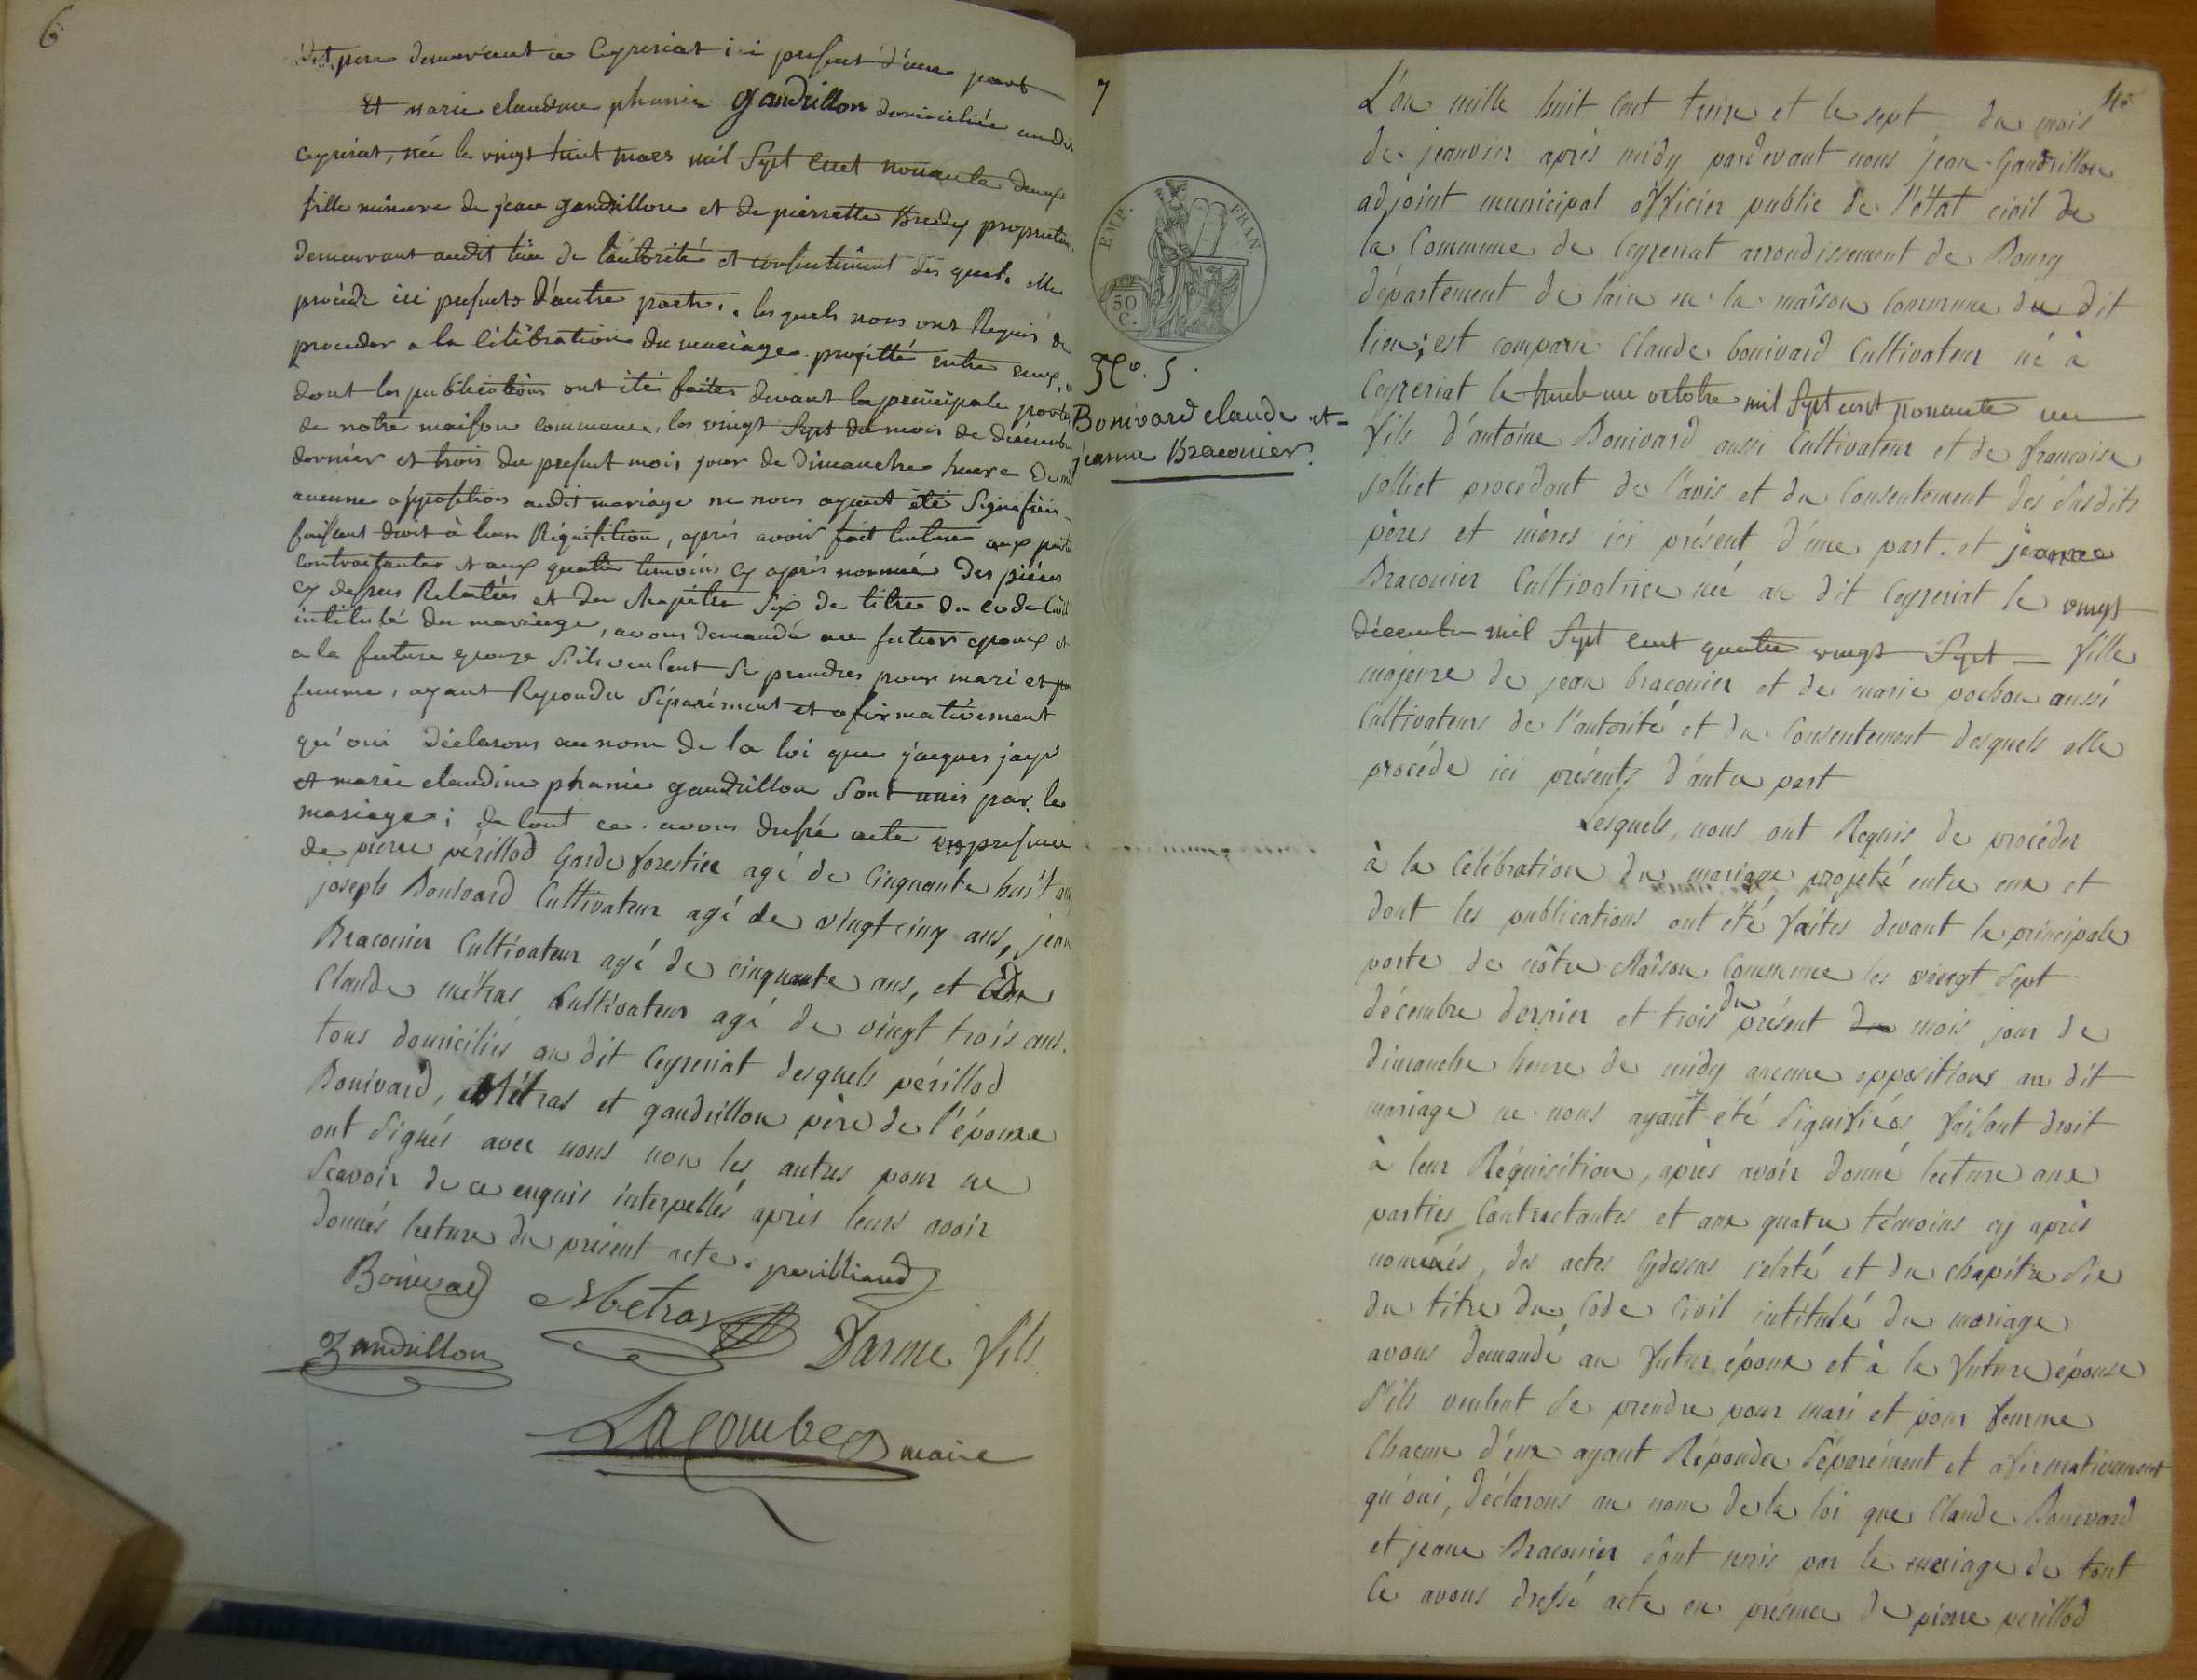 6
dit père demeurant a Ceyzeriat ici present d'une part
Et marie claudine phanie gandrillon domiciliée audit
ceyzeriat, née le vingt huit mars mil Sept Cent nonante deux
fille mineure de jean gandrillon et de pierrette Bredy proprietaires
demeurant audit lieu de l'autorité et consentement des quels elle
procède ici presents d'autre part. les quels nous ont Requis de
proceder a la célébration du mariage projetté entre eux, et
dont les publications ont été faites devant la principale porte
de notre maison commune, les vingt Sept du mois de décembre
dernier et trois du present mois jour de dimanche heure de midi
aucune opposition audit mariage ne nous ayant été Signifiée
faisant droit à leur Réquisition, après avoir fait lecture aux parties
contractantes et aux quatre temoins cy après nommés des pièces
cy dessus Relatées et du chapitre Six de titre du code Civil
intitulé du mariage, avons demandé au futur epoux et
a la future epouze S'ils veulent Se prendre pour mari et pour
femme, ayant Repondu Séparément et afirmativement
qu'oui déclarons au nom de la loi que jacques jayr
et marie claudine phanie gandrillon Sont unis par le
mariage; de tout ce avons dressé acte en presence
de pierre périllod Garde forestier agé de Cinquante huit ans
joseph Bonivard Cultivateur agé de vingt cinq ans, jean
Braconier Cultivateur agé de cinquante ans, et
Claude métras Cultivateur agé de vingt trois ans.
tous domiciliés au dit Ceyzeriat desquels périllod
Bonivard, Métras et gandrillon père de l'épouze
ont Signés avec nous non les autres pour ne
Scavoir de ce enquis interpellés après leurs avoir
donnés lecture du présent acte. perilliaud
Bonivard Metras
gandrillon Darme fils
Lacombe maire
7
EMP. FRAN.
50 C.
No. 5.
Bonivard claude et
jeanne Braconier.
L'an mille huit Cent treize et le sept du mois
de janvier après midy pardevant nous jean Gandrillon
adjoint municipal officier public de l'état civil de
la Commune de Ceyzeriat arrondissement de Bourg
département de l'ain en la maison Commune du dit
lieu; est comparu Claude bonivard Cultivateur né à
Ceyzeriat le trente un octobre mil Sept cent nonante un
fils d'antoine Bonivard aussi Cultivateur et de françoise
jolliet procedant de l'avis et du Consentement des Susdits
pères et mères ici présent d'une part. et jeanne
Braconier Cultivatrice née au dit Ceyzeriat le vingt
décembre mil Sept cent quatre vingt Sept fille
majeure de jean braconier et de marie pochon aussi
Cultivateurs de l'autorité et du Consentement desquels elle
procéde ici présents d'autre part
Lesquels, nous ont Requis de procéder
à la Célébration du mariage projeté entre eux et
dont les publications ont été faites devant la principale
porte de nôtre Maison Commune les vingt Sept
décembre dernier et trois du présent du mois jour de
dimanche heure de midy aucune oppositions au dit
mariage ne nous ayant été Signifiées, faisant droit
à leur Réquisition, après avoir donné lecture aux
parties Contractantes et aux quatre témoins cy après
nommés, des actes cydessus relaté et du chapitre Six
du titre du Code Civil intitulé du mariage
avons demandé au futur époux et à la future épouse
S'ils veulent Se prendre pour mari et pour femme
Chacun d'eux ayant Répondu Séparément et afirmativement
qu'oui, déclarons au nom de la loi que Claude Bonivard
et jeanne Braconier Sont unis par le mariage de tout
Ce avons dressé acte en présence de pierre perillod